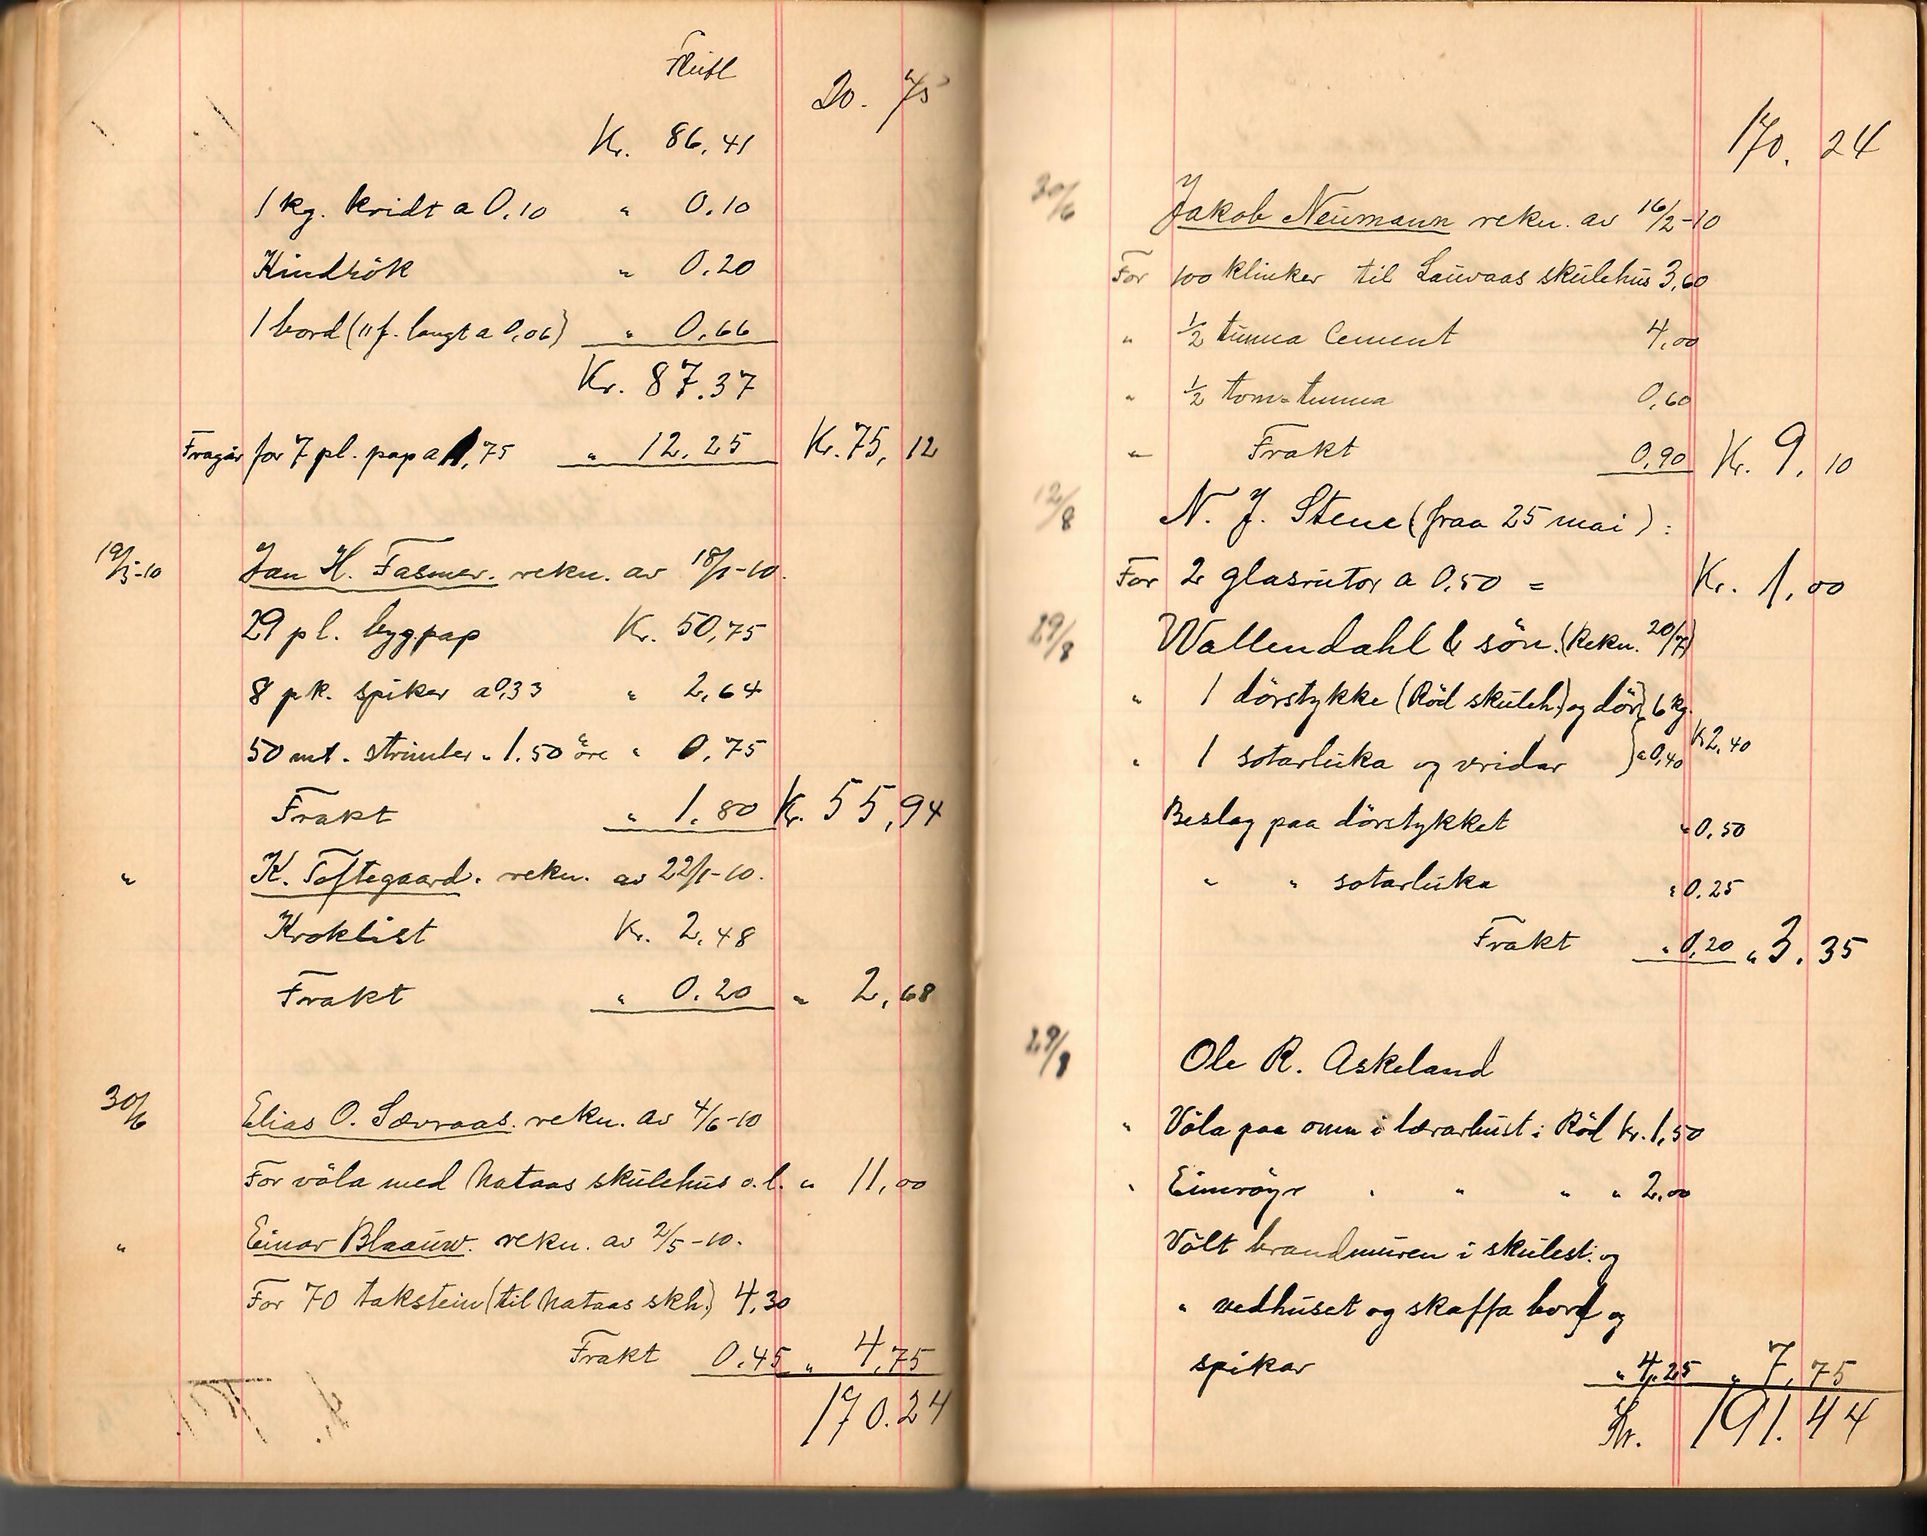 Flutt 20. 75
Kr. 86,41
1 kg. kridt a 0,10 " 0.10
Kindrök " 0,20
1 bord (11 f. langt a 0,06) " 0,66
Kr. 87.37
Fragår for 7 pl. pap a 1,75 " 12.25 Kr. 75, 12
19/5-10 Jan H. Fasmer. rekn. av 18/1-10.
29 pl. bygpap Kr. 50,75
8 pk. spiker a 0,33 " 2,64
50 mt. strimler " 1.50 öre " 0,75
Frakt " 1.80 Kr. 55,94
" K. Toftegaard. rekn. av 22/1-10.
Kroklist Kr. 2,48
Frakt " 0.20 " 2,68
30/6 Elias O. Sævraas. rekn. av 4/6-10
For völa med Nataas skulehus o.l. " 11,00
" Einar Blaauw. rekn. av 2/5-10.
For 70 takstein (til Nataas skh.) 4,30
Frakt 0.45 " 4,75
170.24
170. 24
30/6 Jakob Neumann rekn. av 16/2-10
For 100 klinker til Lauvaas skulehus 3,60
" 1/2 tunna Cement 4,00
" 1/2 tom-tunna 0,60
" Frakt 0,90 Kr. 9, 10
12/8 N. J. Stene (fraa 25 mai):
For 2 glasrutor a 0,50 = Kr. 1,00
29/8 Wallendahl & sön. (Rekn. 20/7)
" 1 dörstykke (Röd skuleh.) og dör } 6 kg.
" 1 sotarluka og vridar } a 0,40 Kr 2,40
Beslag paa dörstykket " 0,50
" " sotarluka " 0.25
Frakt " 0,20 " 3. 35
29/8 Ole R. Askeland
" Völa paa omn i lærarhust i Röd Kr. 1,50
" Eimröyr " " " " 2,00
Völt brandmuren i skulest. og
" vedhuset og skaffa bord og
spikar " 4,25 " 7, 75
Kr. 191.44